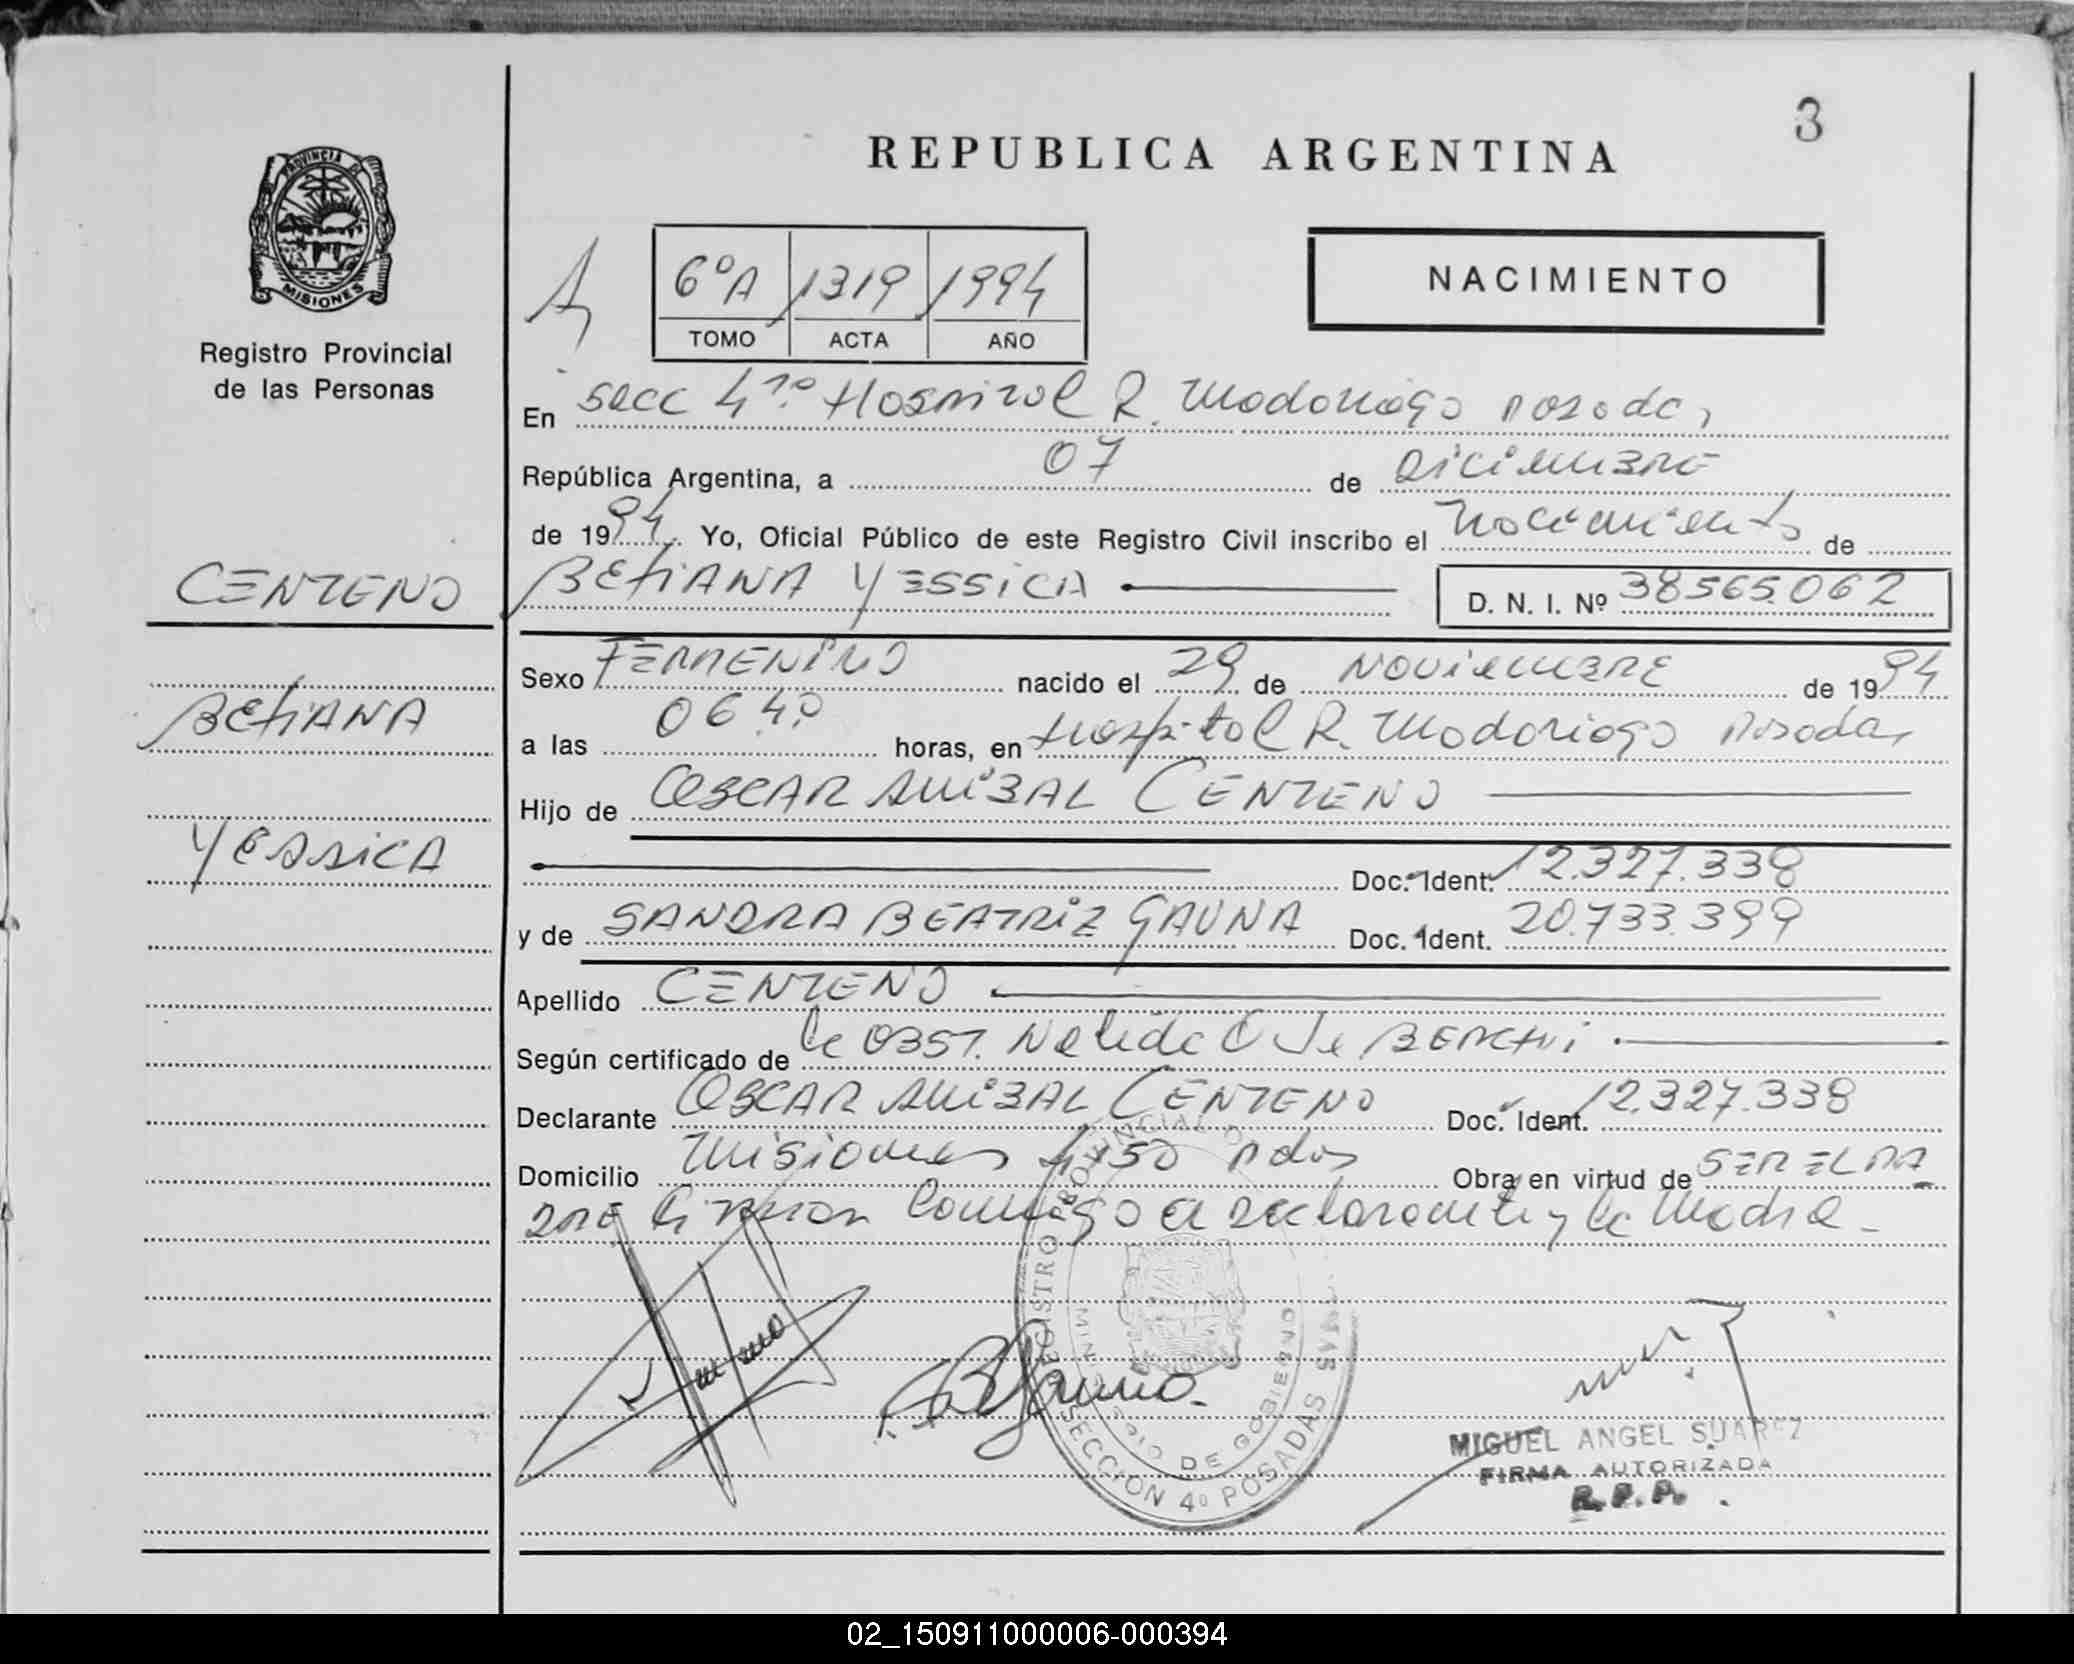 3
REPUBLICA ARGENTINA
PROVINCIA DE
MISIONES
Registro Provincial
de las Personas
6º A 1319 1994
TOMO ACTA AÑO
NACIMIENTO
En secc 4ª Hospital R. Madariaga Posadas
República Argentina, a 07 de Diciembre
de 1994. Yo, Oficial Público de este Registro Civil inscribo el Nacimiento de
CENTENO
BETIANA YESSICA
D. N. I. Nº 38565.062
Sexo FEMENINO nacido el 29 de NOVIEMBRE de 1994
BETIANA
a las 06.40 horas, en Hospital R. Madariaga Posadas
Hijo de OSCAR ANIBAL CENTENO
YESSICA
Doc. Ident. 12.327.338
y de SANDRA BEATRIZ GAUNA Doc. Ident. 20.733.399
Apellido CENTENO
Según certificado de la OBST. Nelida O de
Declarante OSCAR ANIBAL CENTENO Doc. Ident. 12.327.338
Domicilio Misiones 4150 Pdas Obra en virtud de SER EL PA
DRE firman conmigo el declarante y la Madre -
REGISTRO PROVINCIAL D
MINISTERIO DE GOBIERNO
SECCION 4º POSADAS
MIGUEL ANGEL SUAREZ
FIRMA AUTORIZADA
R.P.P.
02_150911000006-000394